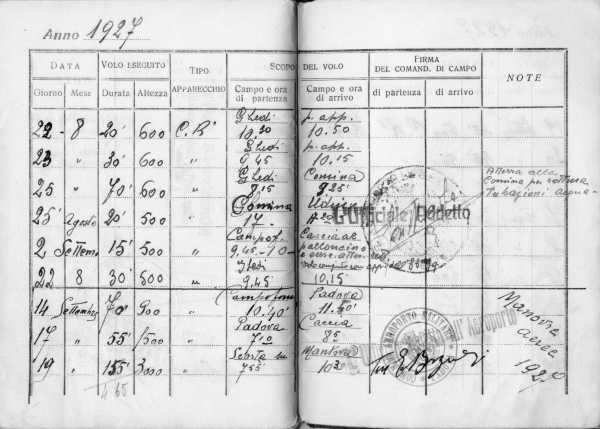 Anno 1927
DATA VOLO ESEGUITO TIPO APPARECCHIO SCOPO DEL VOLO FIRMA DEL COMAND. DI CAMPO NOTE
Giorno Mese Durata Altezza Campo e ora di partenza Campo e ora di arrivo di partenza di arrivo
22 - 8 20' 600 C.R. Ghedi 10.30 p. app. 10.50
23 " 30' 600 " Ghedi 9.45 p. app. 10.15
25 " 70' 600 " Ghedi 8.15 Comina 9.25 Atterra alla Comina per rottura tubazioni acqua
25 Agosto 20' 500 " Comina 17 - Udine
L'Ufficiale Addetto
2 Settemb 15' 500 " Campof. 9.45 - 10 Caccia al palloncino
22 8 30' 500 " Ghedi 9.45 10.15
14 Settembre 70' 900 " 10.40' Padova 11.40'
17 " 55' 1500 " Padova 7.10 Caccia 8.5
19 " 155' 3000 " Scorta su 7.55 Mantova 10.30
AEROPORTO MILITARE
Manovre aeree 1927